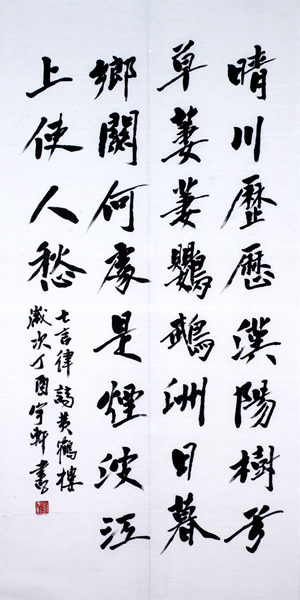 晴川歷歷漢陽樹芳
草萋萋鸚鵡洲日暮
鄉關何處是煙波江
上使人愁
七言律詩黃鶴樓
歲次丁酉宇軒書